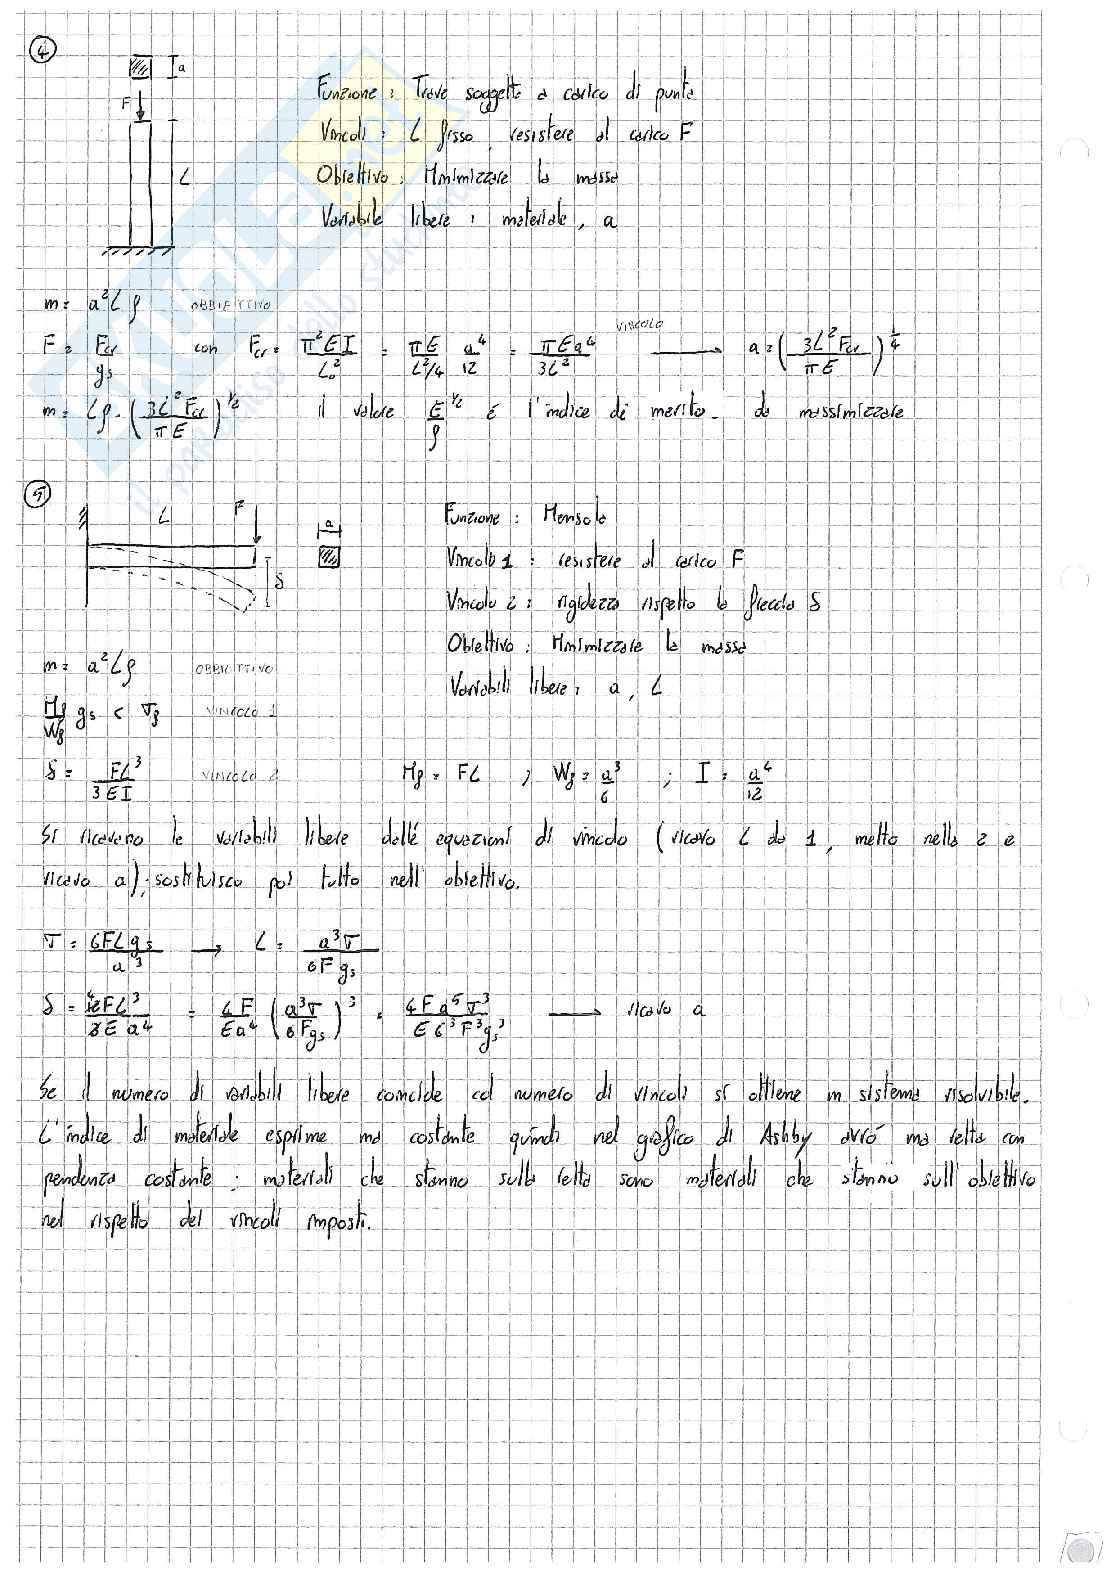 4
a
F
L
Funzione : Trave soggetta a carico di punta
Vincoli : L fisso, resistere al carico F
Obiettivo : Minimizzare la massa
Variabile libere : materiale, a
m = a²Lρ OBBIETTIVO
F = Fcr/gs con Fcr = π²EI/L₀² = πE/(L²/4) a⁴/12 = πEa⁴/3L² VINCOLO → a = (3L²Fcr/πE)^¼
m = Lρ · (3L²Fcr/πE)^1/2 il valore E^1/2/ρ é l'indice di merito da massimizzare
5
L
F
a
δ
Funzione : Mensola
Vincolo 1 : resistere al carico F
Vincolo 2 : rigidezza rispetto la freccia δ
Obiettivo : Minimizzare la massa
Variabili libere : a, L
m = a²Lρ OBBIETTIVO
Mf/Wf gs < σf VINCOLO 1
δ = FL³/3EI VINCOLO 2 Mf = FL ; Wf = a³/6 ; I = a⁴/12
Si ricavano le variabili libere dalle equazioni di vincolo (ricavo L da 1, metto nella 2 e
ricavo a), sostituisco poi tutto nell'obiettivo.
σ = 6FLgs/a³ → L = a³σ/6Fgs
δ = 12FL³/3Ea⁴ = 4F/Ea⁴ (a³σ/6Fgs)³ = 4Fa⁵σ³/E6³F³gs³ → ricavo a
Se il numero di variabili libere coincide col numero di vincoli si ottiene un sistema risolvibile.
L'indice di materiale esprime una costante quindi nel grafico di Ashby avró una retta con
pendenza costante : materiali che stanno sulla retta sono materiali che stanno sull'obiettivo
nel rispetto dei vincoli imposti.